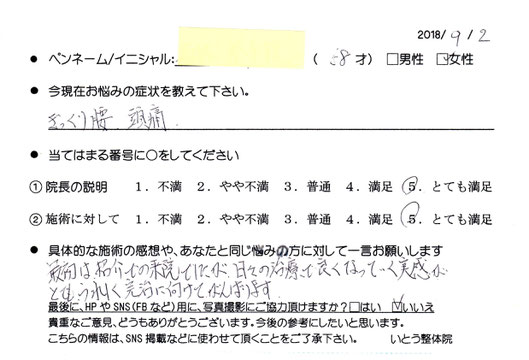 2018/ 9 / 2
● ペンネーム/イニシャル: ( 58才) □男性 ☑女性
● 今現在お悩みの症状を教えて下さい。
ぎっくり腰、頭痛
● 当てはまる番号に○をしてください
①院長の説明 1. 不満 2. やや不満 3. 普通 4. 満足 5. とても満足
②施術に対して 1. 不満 2. やや不満 3. 普通 4. 満足 5. とても満足
● 具体的な施術の感想や、あなたと同じ悩みの方に対して一言お願いします
最初は紹介での来院でしたが、日々の治療で良くなっていく実感が
とてもうれしく完治に向けてがんばります
最後に、HP や SNS(FB など)用に、写真撮影にご協力頂けますか?□はい ☑いいえ
貴重なご意見、どうもありがとうございます。今後の参考にしたいと思います。
こちらの情報は、SNS 掲載などに使わせて頂くことをご了承下さい。 いとう整体院